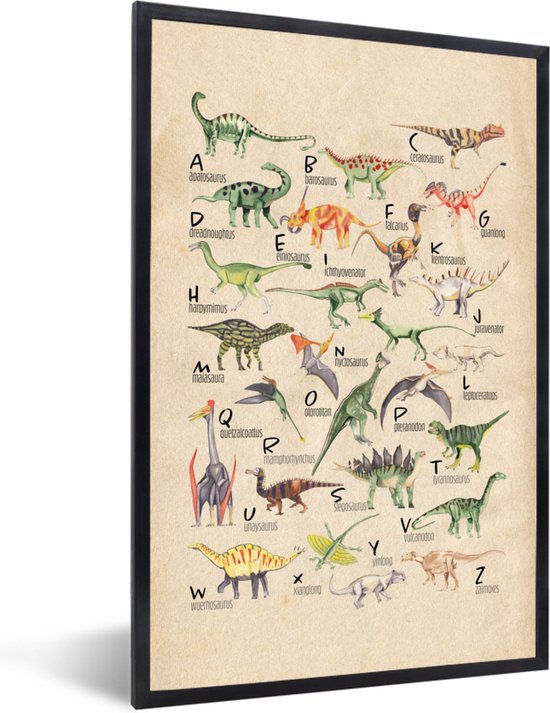 A
apatosaurus
B
barosaurus
C
ceratosaurus
D
dreadnoughtus
E
einiosaurus
F
falcarius
G
guanlong
H
harpymimus
I
ichthyovenator
K
kentrosaurus
J
juravenator
M
maiasaura
N
nyctosaurus
L
leptoceratops
O
olorotitan
P
pteranodon
Q
quetzalcoatlus
R
rhamphorhynchus
S
stegosaurus
T
tyrannosaurus
U
unaysaurus
V
vulcanodon
W
wuerhosaurus
X
xianglong
Y
yinlong
Z
zalmoxes